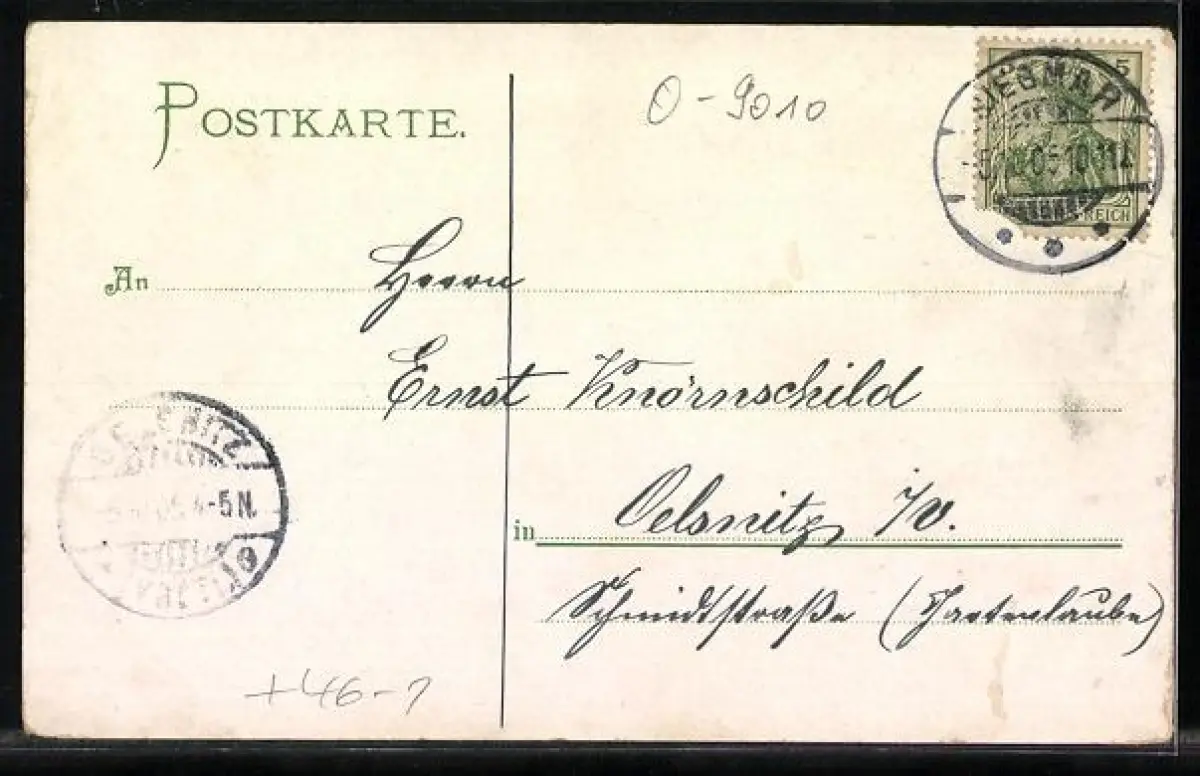 POSTKARTE.
O-9010
5
SIEGMAR
REICH
An Herrn
Ernst Knörnschild
in Oelsnitz i/V.
Schmidtstraße (Gartenlaube)
4-5N.
+46-1